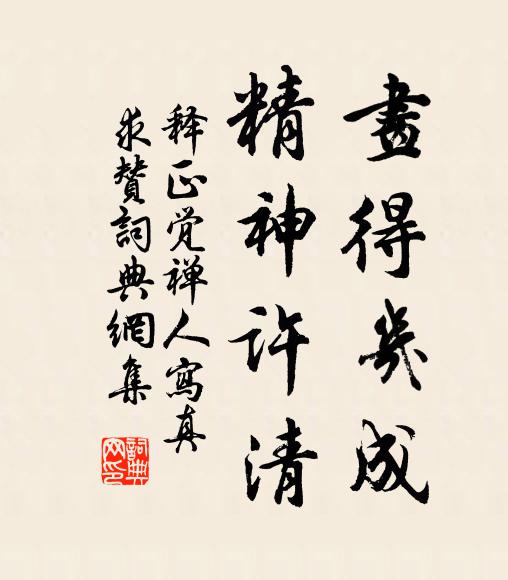 畫得幾成
精神許清
释正觉禅人寫真
求贊詞典網集
詞典
网印